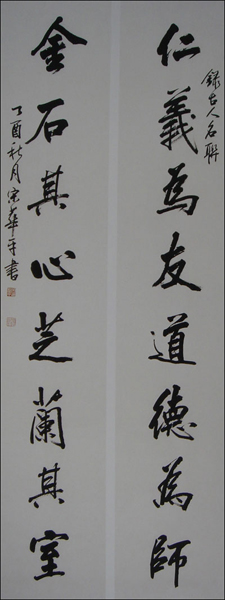 錄古人名聯
仁義為友道德為師
金石其心芝蘭其室
丁酉秋月宋華平書